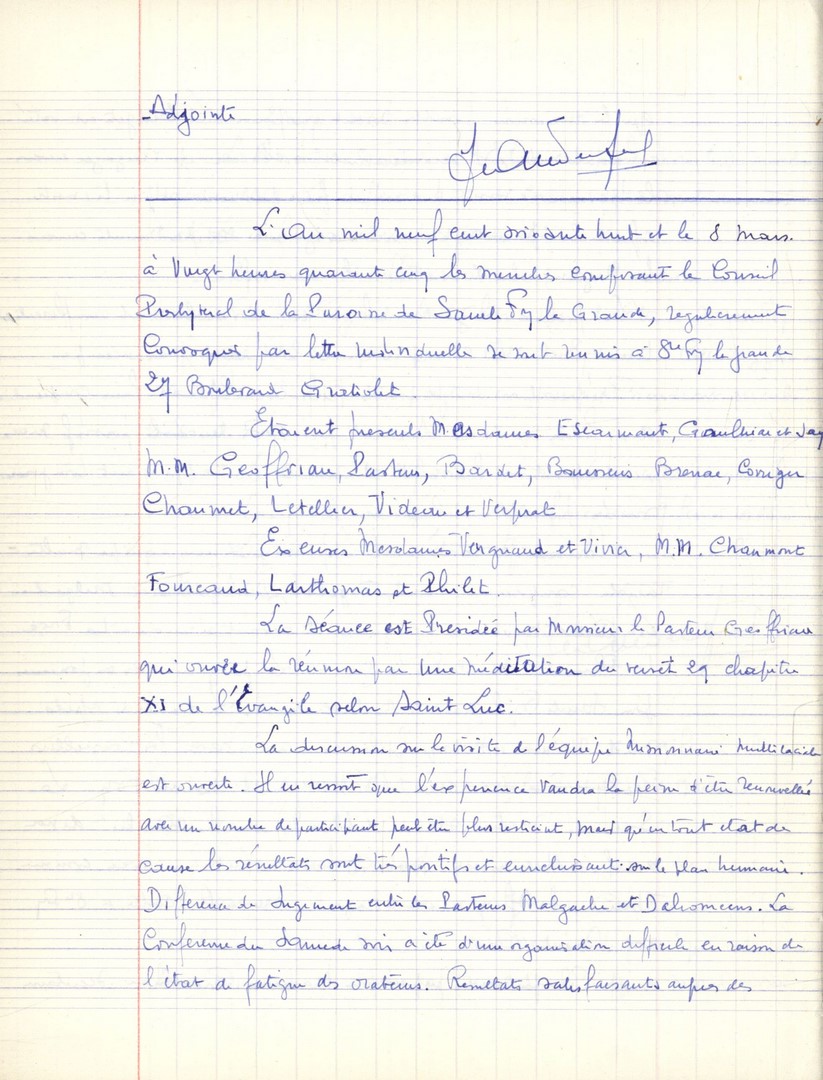 Adjointe
L'An mil neuf cent soixante huit et le 8 Mars
à Vingt heures quarante cinq les membres composant le Conseil
Presbyteral de la Paroisse de Sainte Foy la Grande, regulierement
Convoqués par lettre individuelle se sont réunis à Ste Foy la grande
27 Boulevard Gratiolet.
Étaient presents Mesdames Escarmant, Gaulhiac et Jay
M.M. Geoffriau, Pasteur, Bardet, Brenac, Corriger
Chaumet, Letellier, Videau et Verprat
Excusés Mesdames Vergnaud et Vivier, M.M. Chaumont
Fourcaud, Larthomas et Philit.
La séance est Presidée par Monsieur le Pasteur Geoffriau
qui ouvre la réunion par une méditation du verset 29 chapitre
XI de l'Evangile selon Saint Luc.
La discussion sur la visite de l'équipe Missionnaire Multiraciale
est ouverte. Il en ressort que l'experience Vaudra la peine d'être renouvellée
avec un nombre de participant peut être plus restreint, mais qu'en tout etat de
cause les résultats sont très positifs et enrichissant sur le plan humain.
Difference de Jugement entre les Pasteurs Malgache et Dahoméens. La
Conference du Samedi soir a été d'une organisation difficile en raison de
l'état de fatigue des orateurs. Resultats satisfaisants aupres des